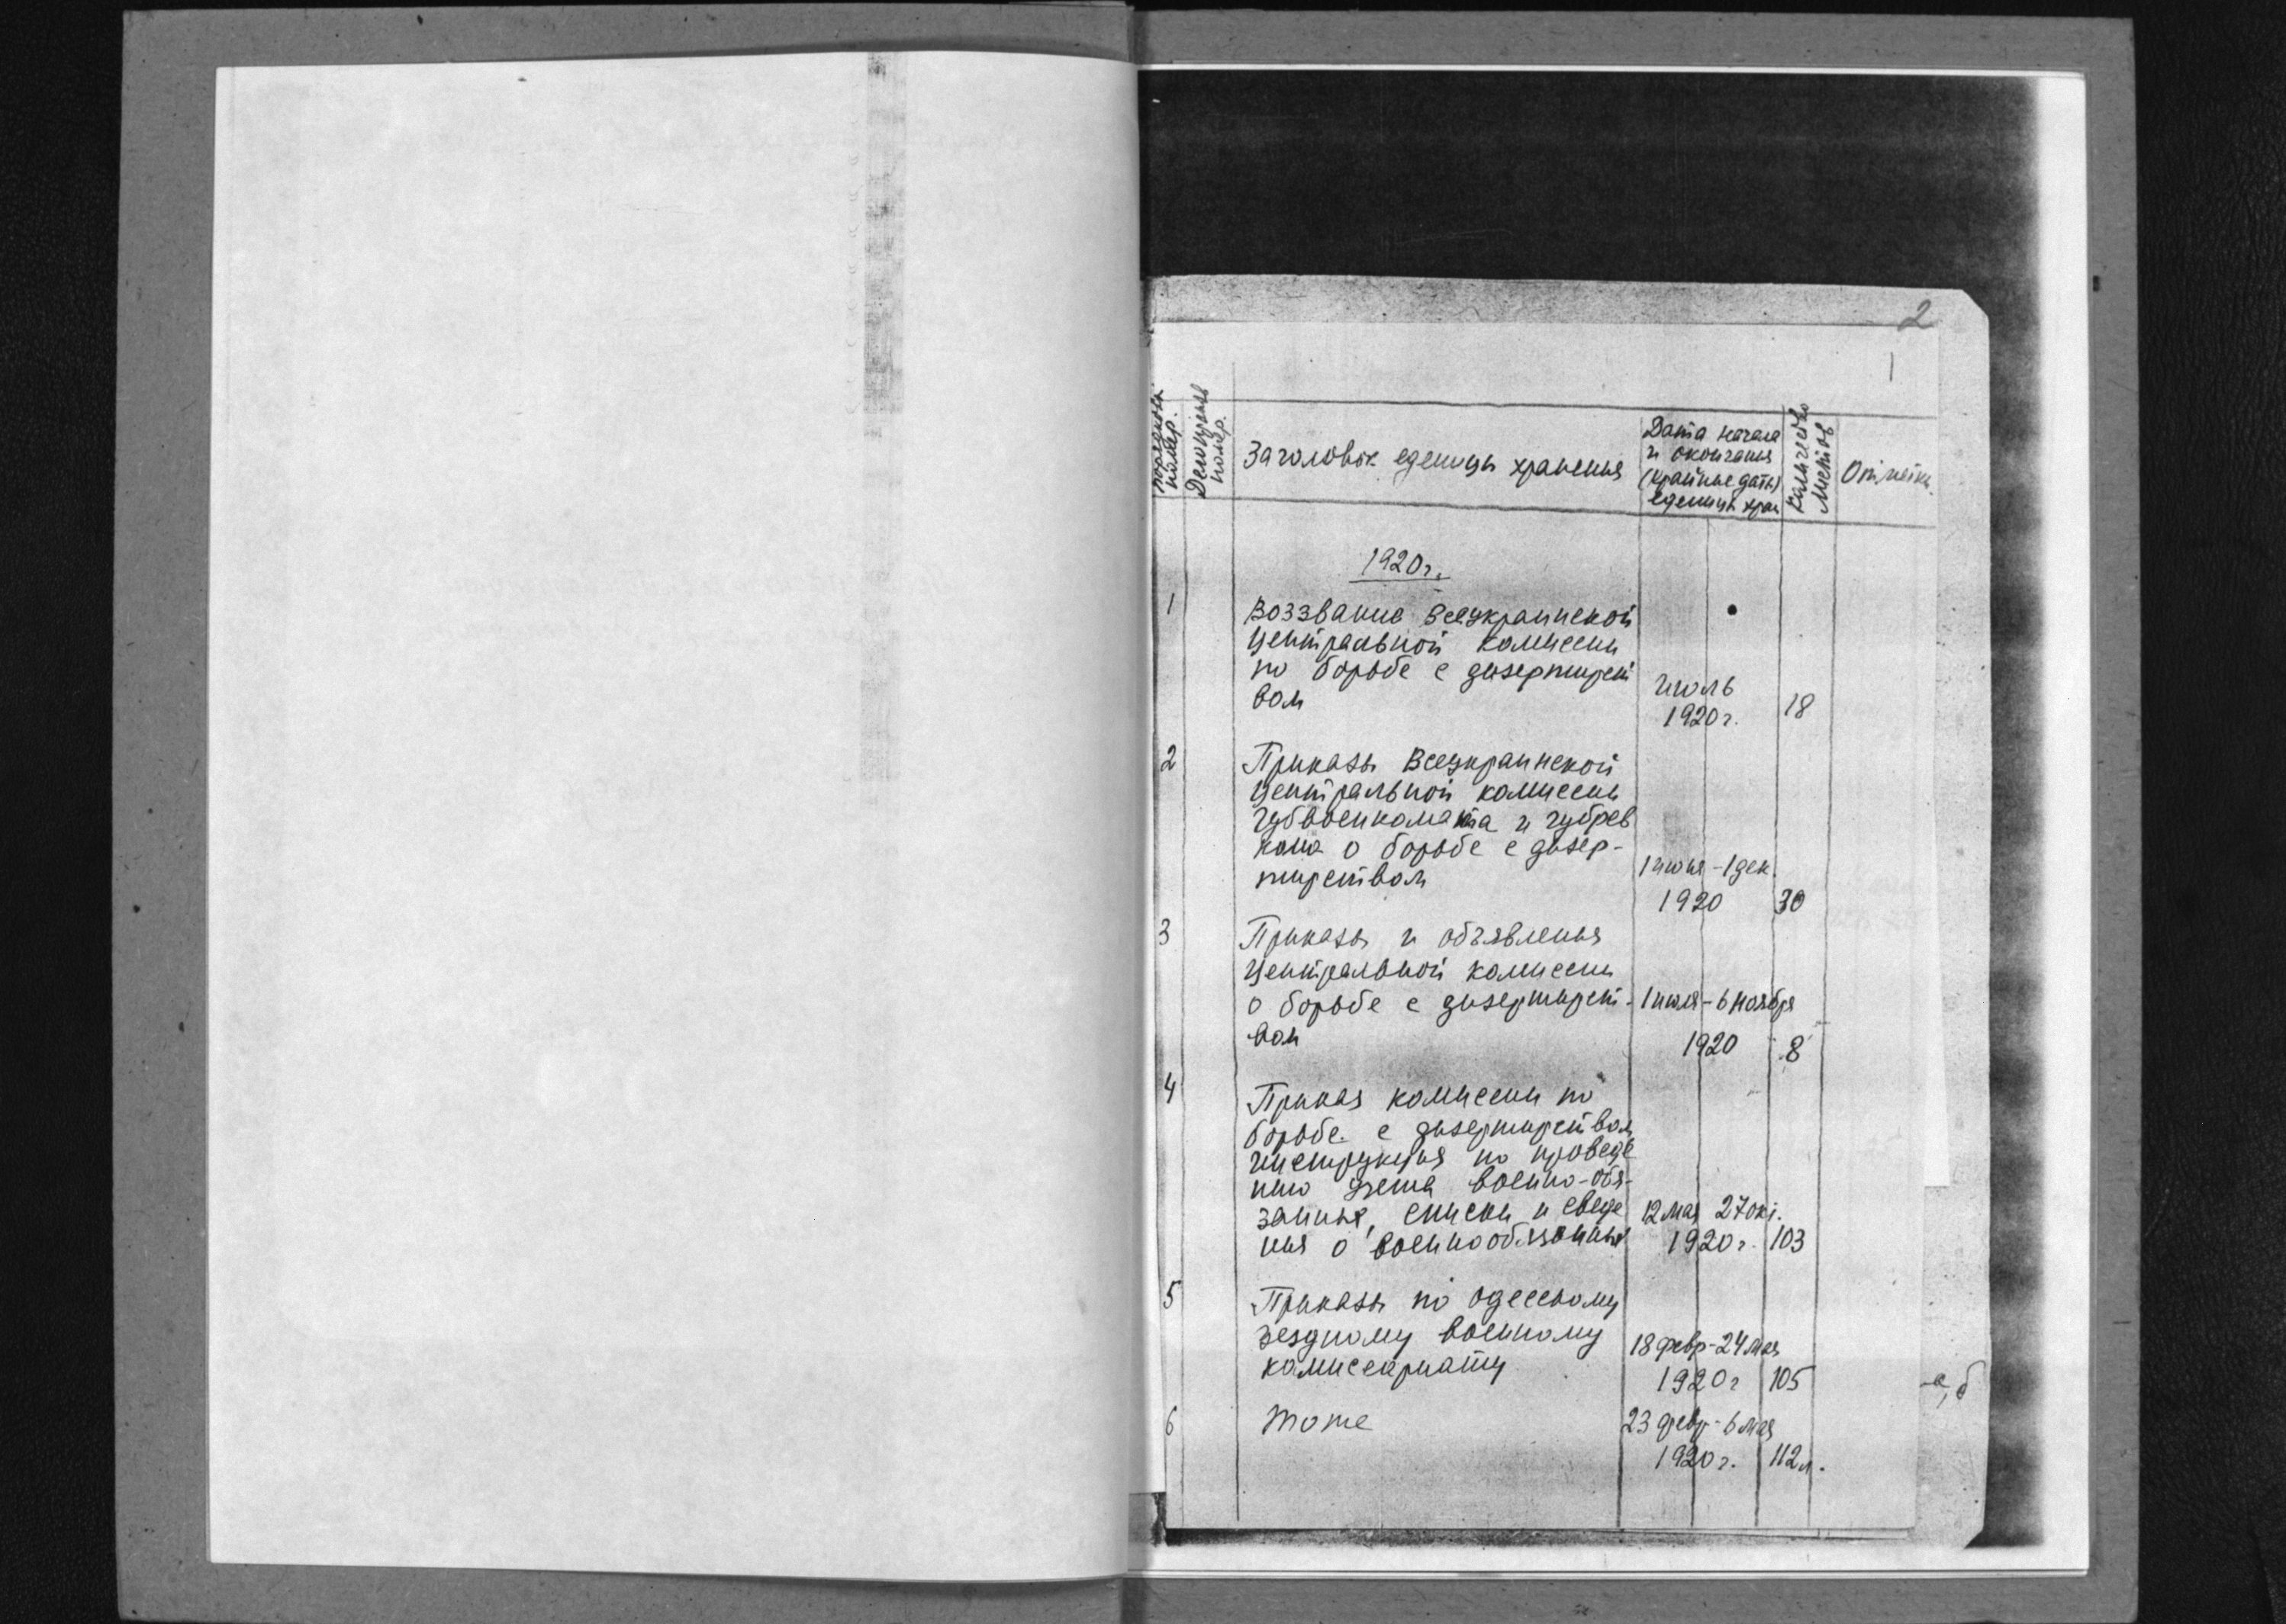 2
1
порядков. номер.
Делопроизв номер.
Заголовок единицы хранения
Дата начала
и окончания
(крайние даты)
единицы хран
Количество листов
Отметки
1920г.
1
Воззвание Всеукраинской
центральной комиссии
по борьбе с дизертирст
вом
июль
1920г.
18
2
Приказы Всеукраинской
центральной комиссии
губвоенкомата и губрев
кома о борьбе с дизер-
тирством
1 июня - 1 дек.
1920
30
3
Приказы и объявления
центральной комиссии
о борьбе с дизертирст-
вом
1 июля - 6 ноября
1920
8
4
Приказ комиссии по
борьбе с дизертирством
инструкция по проведе
нию учета военно-обя-
занных, списки и сведе
ния о военнообязанных
12 мая 27 окт.
1920г.
103
5
Приказы по одесскому
уездному военному
комиссариату
18 февр - 24 мая
1920г
105
а, б
6
тоже
23 февр - 6 мая
1920г.
112л.